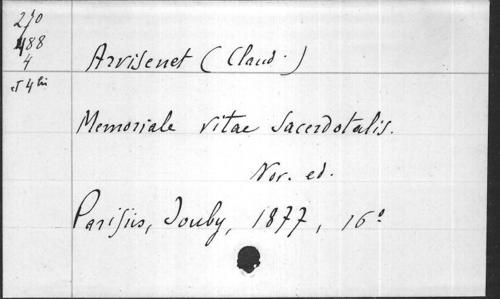 270
488
4
et 4 bis
Arvisenet (Claud.)
Memoriale vitae sacerdotalis.
Nov. ed.
Parisiis, Jouby, 1877, 16º